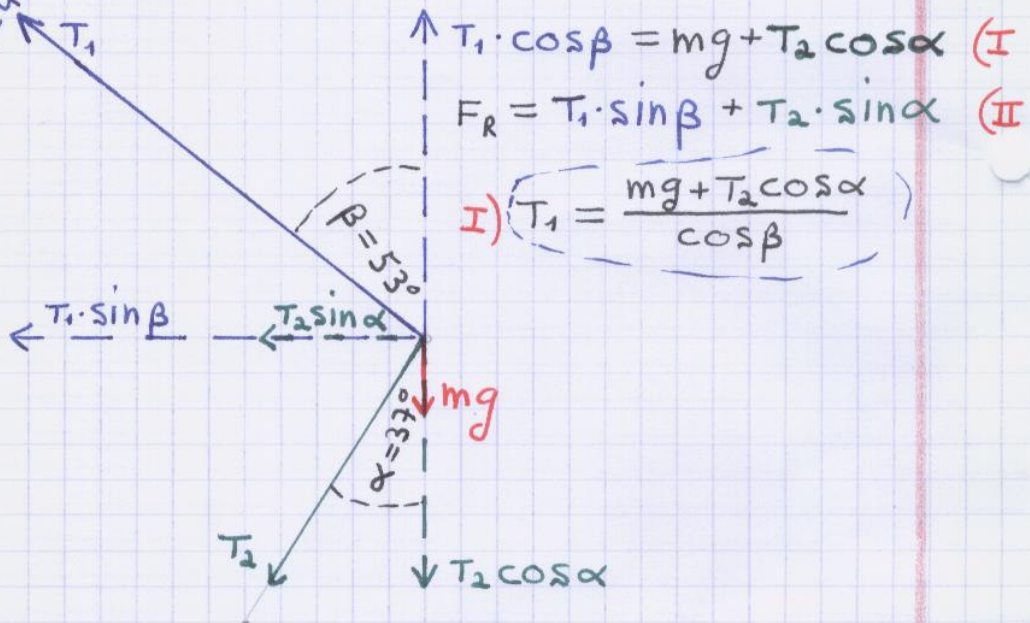 T₁
T₁·cosβ = mg + T₂cosα (I
F_R = T₁·sinβ + T₂·sinα (II
I) T₁ = (mg + T₂cosα) / cosβ
β = 53°
T₁·sinβ
T₂sinα
mg
α = 37°
T₂
T₂cosα